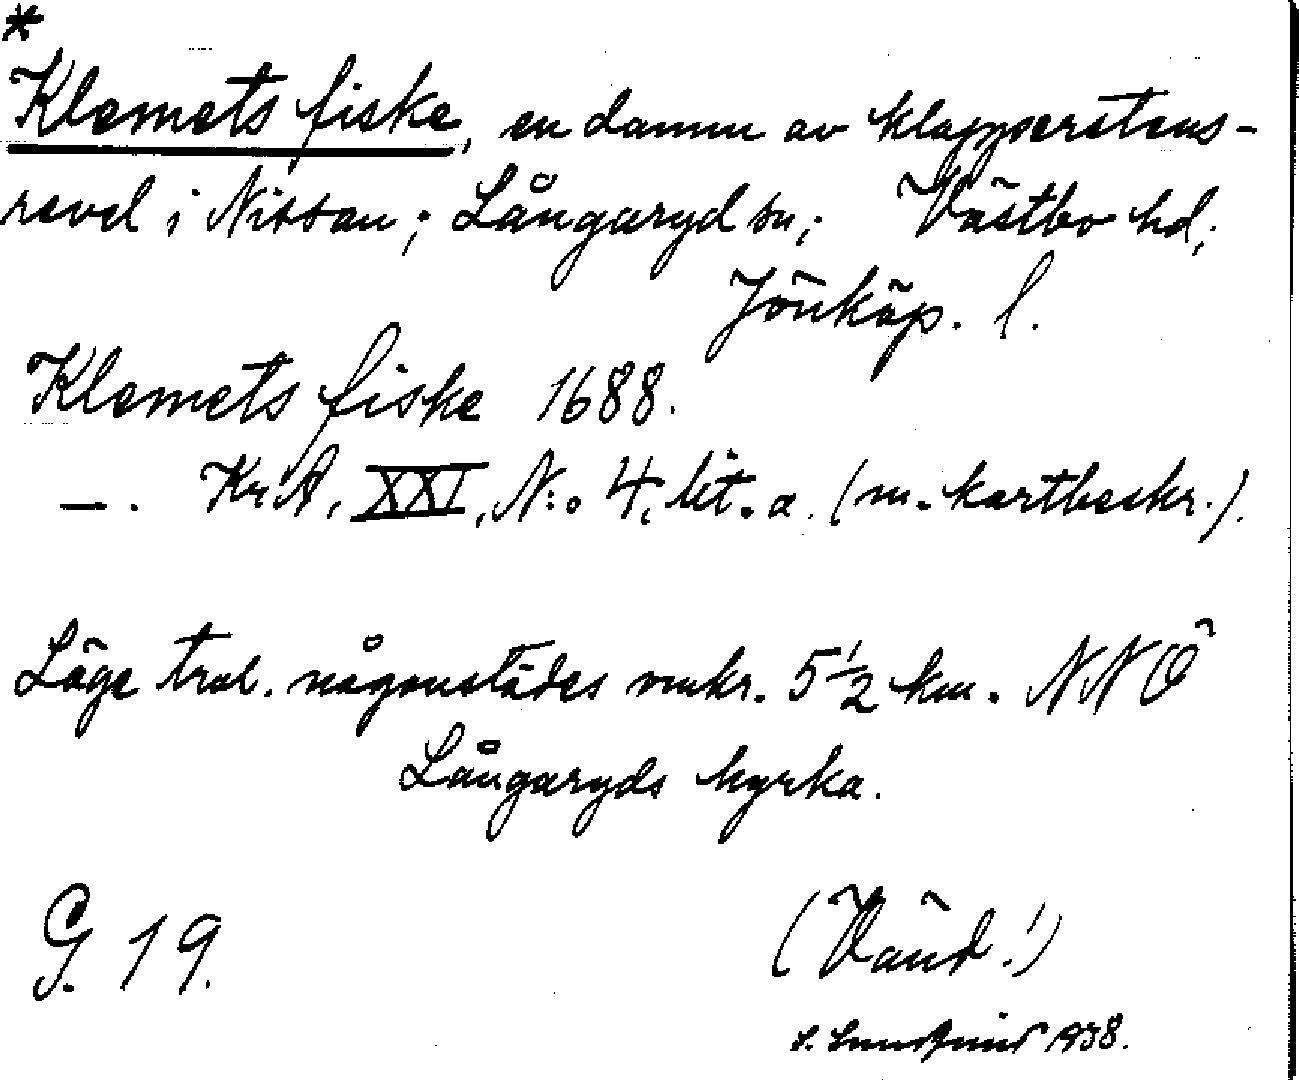 *
Klemets fiske, en damm av klapperstens-
revel i Nissan; Långaryd sn; Västbo hd;
Jönköp. l.
Klemets fiske 1688.
—. KrA, XXI, N:o 4, lit. a. (m. kartbeskr.).
Läge trol. någonstädes omkr. 5½ km. NNÖ
Långaryds kyrka.
G. 19.
(Vänd!)
1938.